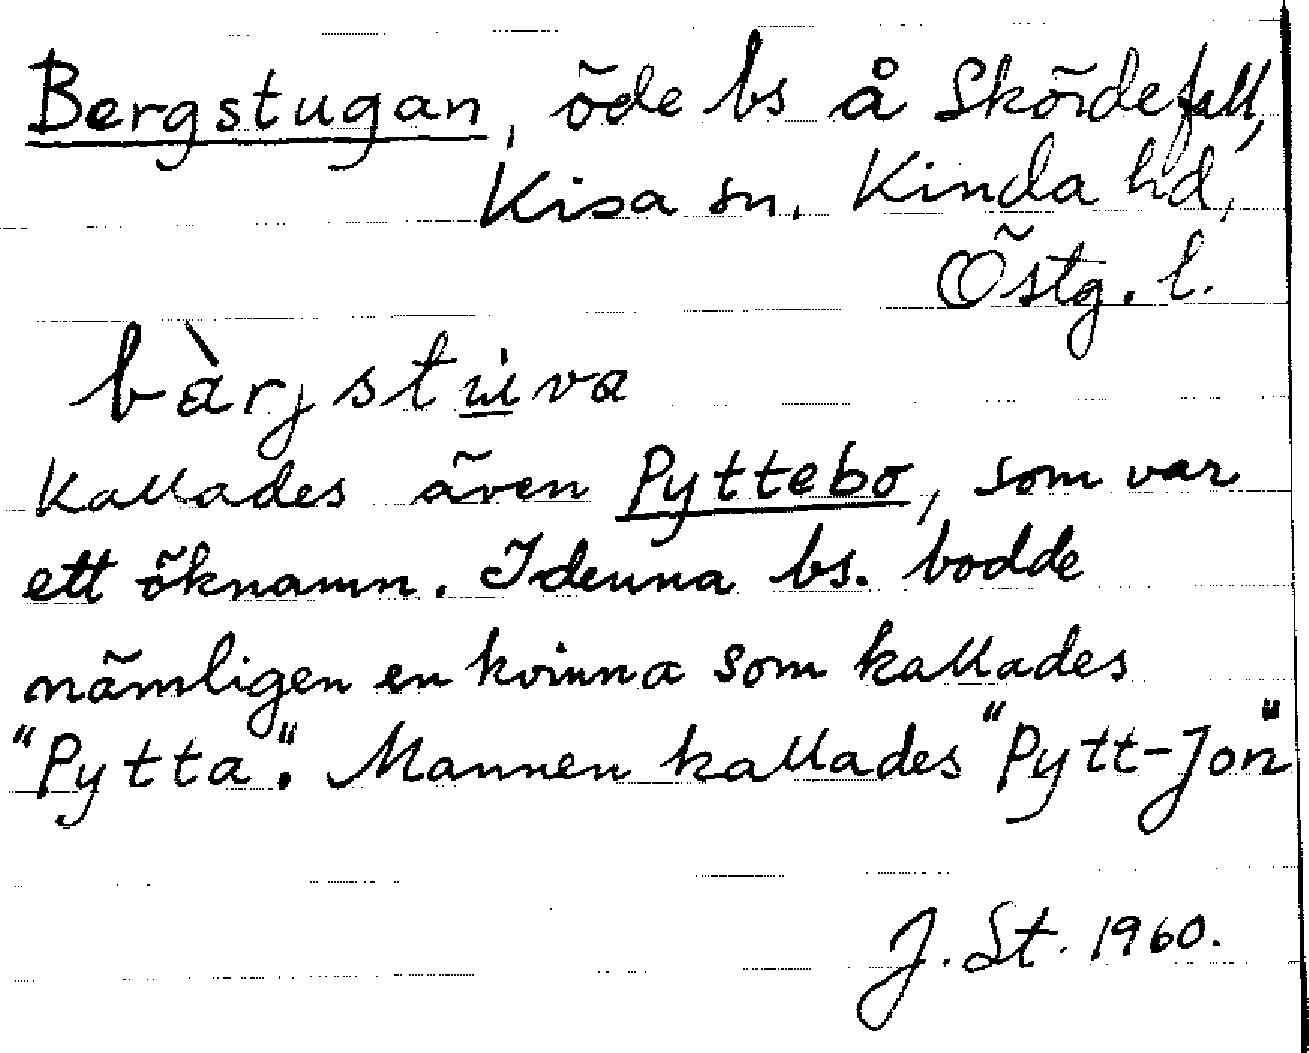 Bergstugan, öde bs å Skördefall,
Kisa sn. Kinda hd,
Östg. l.
bàrjstu̇va
Kallades även Pyttebo, som var
ett öknamn. I denna bs. bodde
nämligen en kvinna som kallades
"Pytta". Mannen kallades "Pytt-Jon"
J. St. 1960.